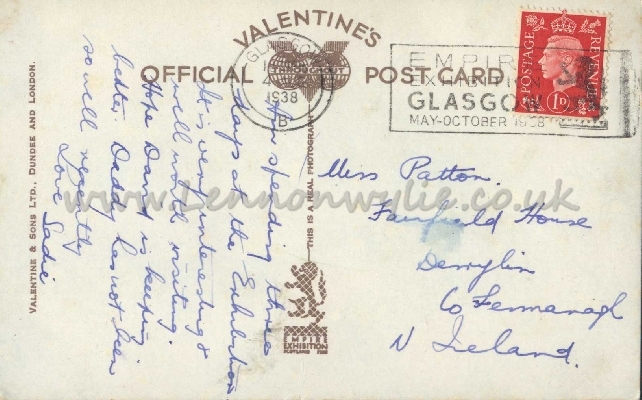 VALENTINE'S
OFFICIAL POST CARD
GLASGOW
1938
B
EMPIRE
EXHIBITION
GLASGOW
MAY-OCTOBER 1938
POSTAGE REVENUE
1D
Am spending three
days at the Exhibition
It is very interesting &
well worth visiting.
Hope David is keeping
better. Daddy has not been
so well recently
Love Sadie
Miss Patton.
Fairfield House
Derrylin
Co Fermanagh
N Ireland.
THIS IS A REAL PHOTOGRAPH
VALENTINE & SONS LTD., DUNDEE AND LONDON.
EMPIRE
EXHIBITION
SCOTLAND 1938
www.Lennonwylie.co.uk